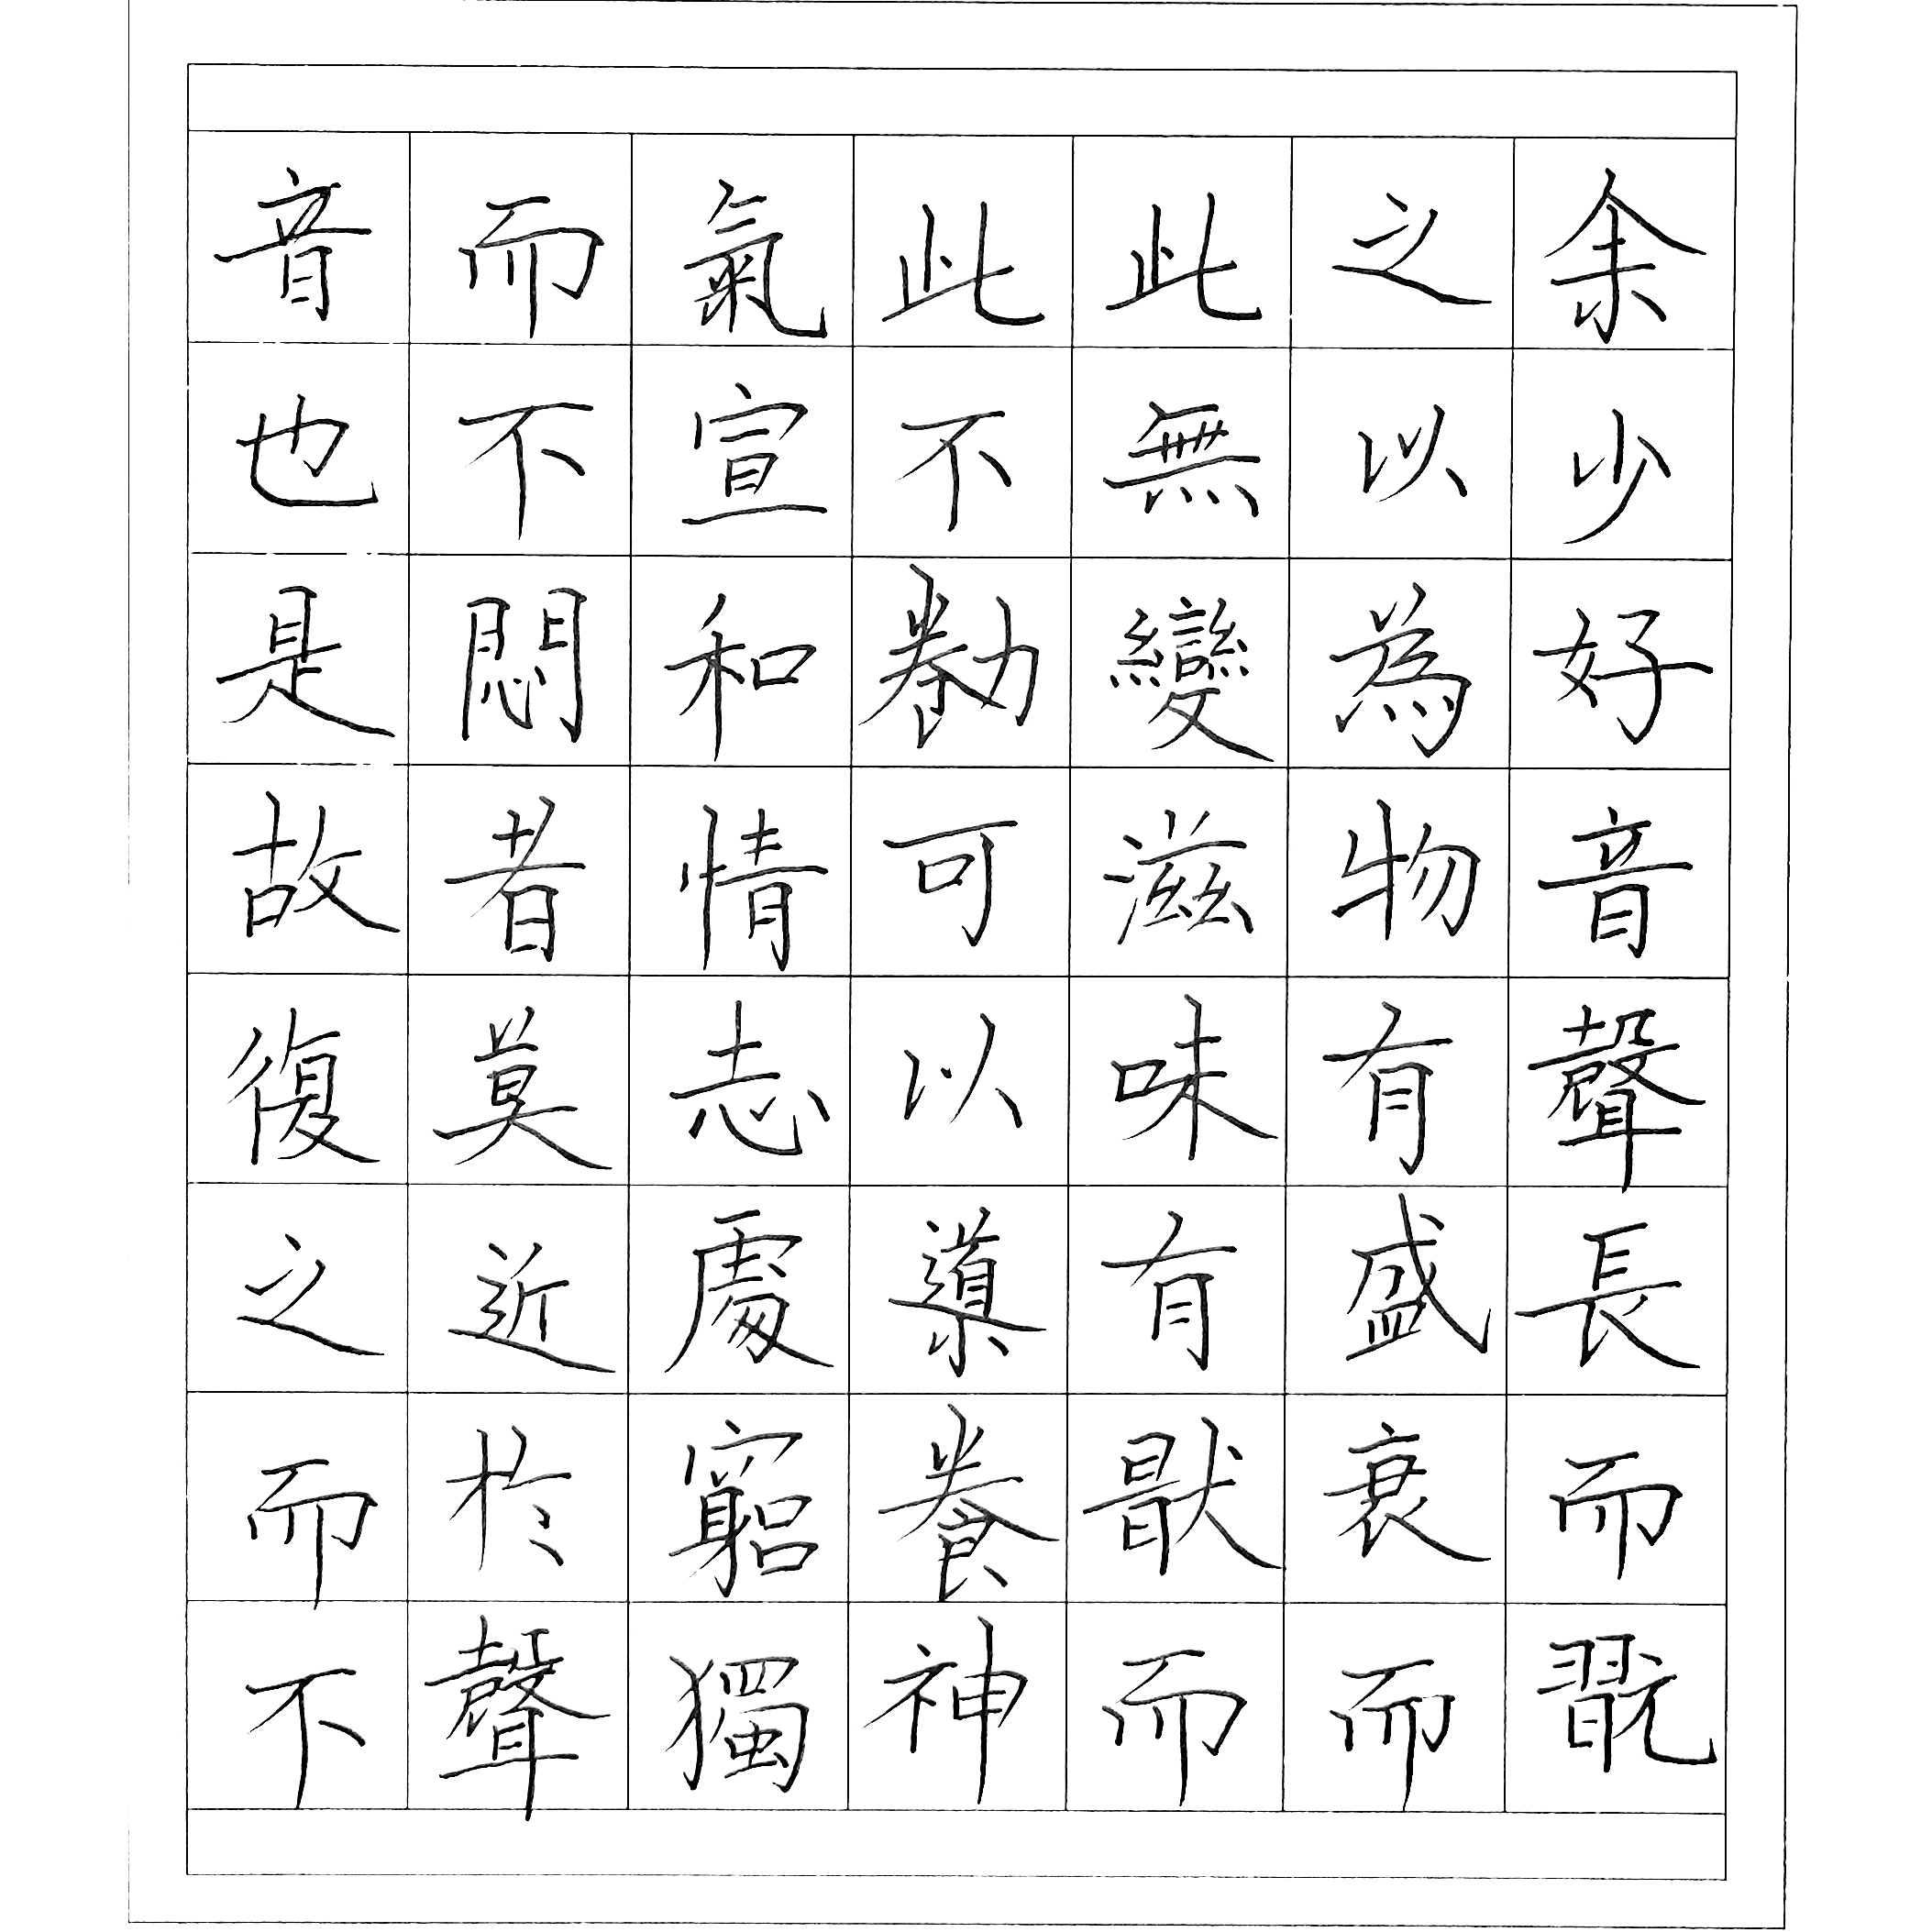 余少好音聲長而翫
之以為物有盛衰而
此無變滋味有猒而
此不勌可以導養神
氣宣和情志處窮獨
而不悶者莫近於聲
音也是故復之而不